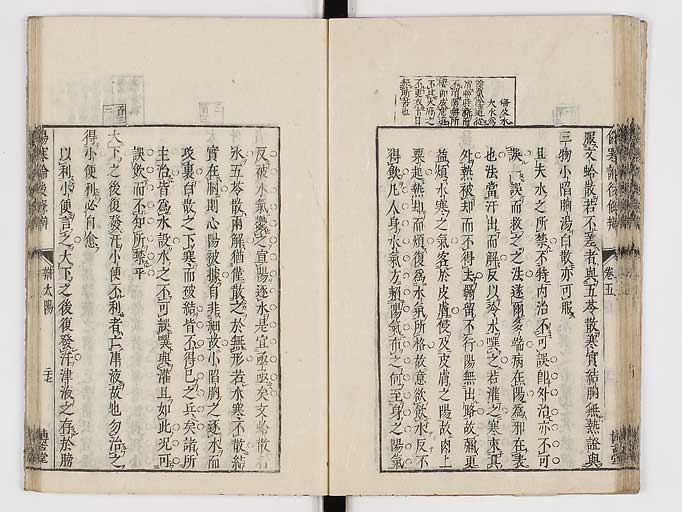 服文蛤散若不差者與五苓散寒實結胸無熱證與
三物小陷胸湯白散亦可服
且夫水之所禁不特內治不可誤即外治亦不可
誤一誤而救之之法遂爾多端病在陽為邪在表
也法當汗出而解反以冷水噀之若灌之寒束其
外熱被却而不得去彌留不行陽無出路故彌更
益煩水寒之氣客於皮膚侵及皮膚之陽故肉上
粟起熱却而煩復為水氣所格故意欲飲水反不
得飲凡人身水氣方賴陽氣布之何至身之陽氣
卷五
反被水氣鬱之宣陽逐水是宜亟亟矣文蛤散
水五苓散兩解猶僅散之於無形若水寒不散結
實在胸則心陽被據自非細故小陷胸之逐水而
攻裏白散之下寒而破結皆不得已之兵矣諸所
主治皆為水故水之不可誤噀與灌且如此况可
誤飲而不知所禁乎
大下之後復發汗小便不利者亡津液故也勿治之
得小便利必自愈
以利小便言之大下之後復發汗津液之存於膀
傷寒論後條辨
辨太陽